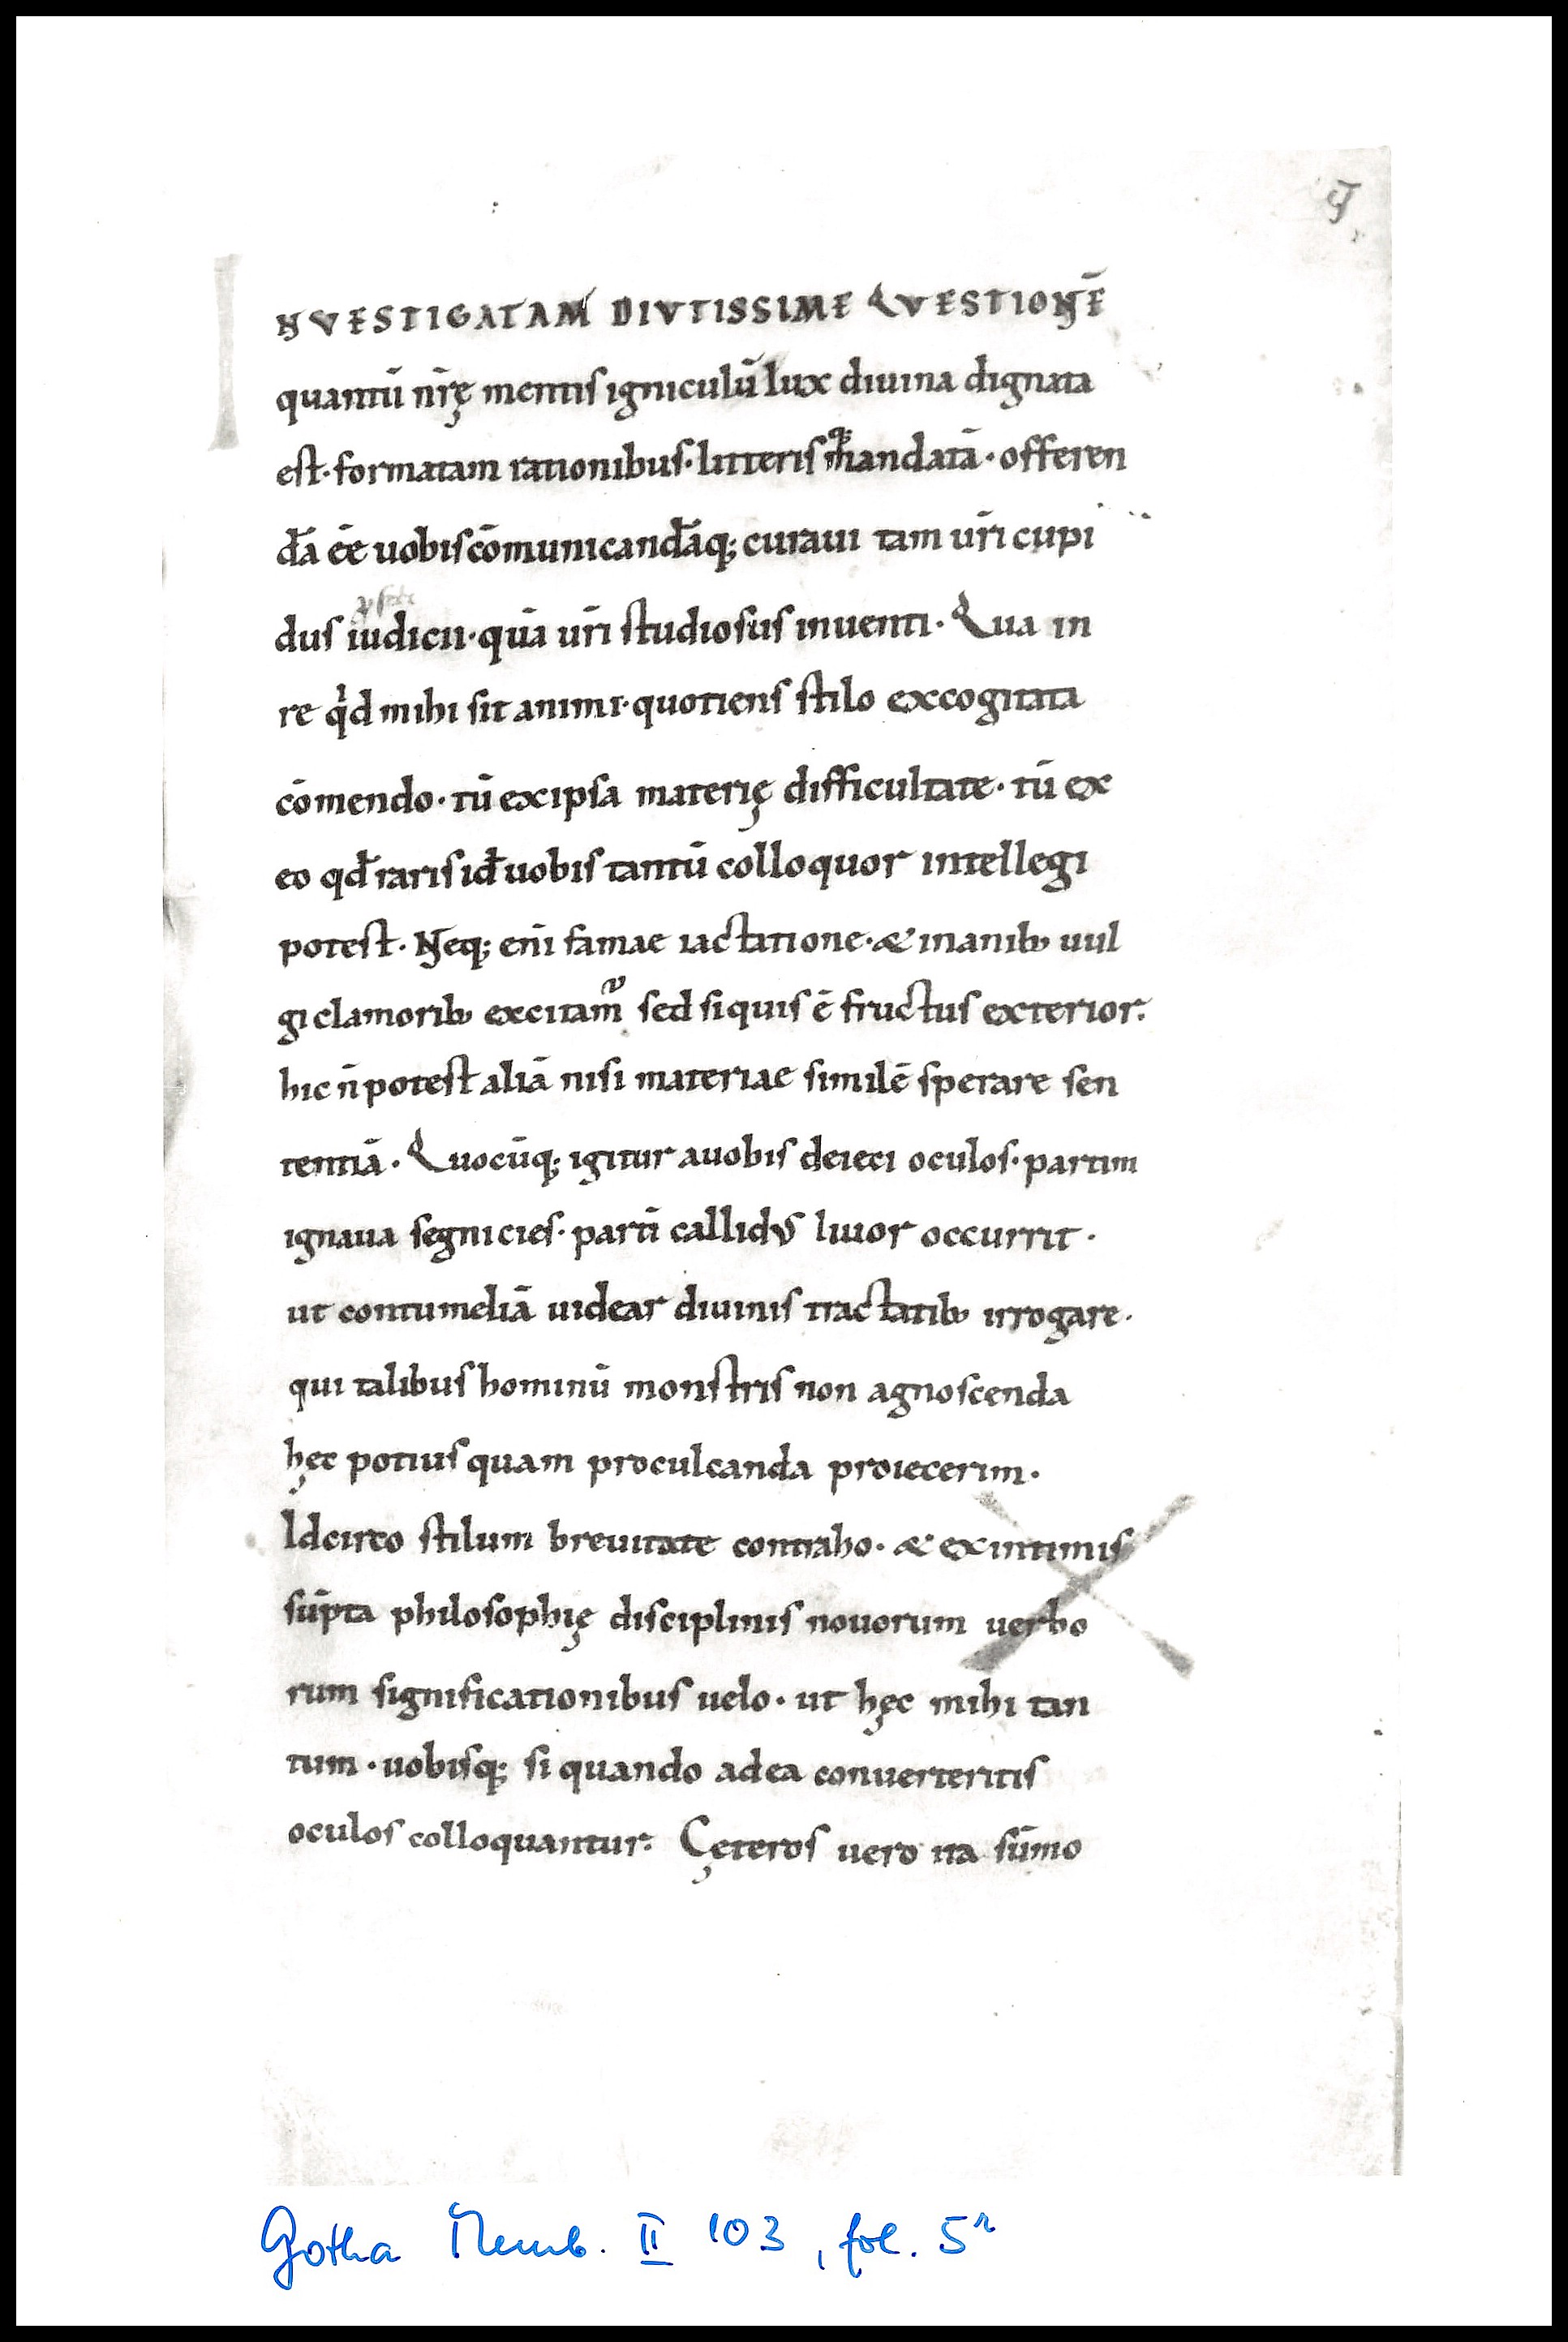 5
INVESTIGATAM DIVTISSIME QVESTIONĒ
quantū nr̄ę mentis igniculū lux diuina dignata
est· formatam rationibus· litteris q; mandatā· offeren
dā ēē uobis cōmunicandāq; curaui tam ur̄i cupi
dus iudicii· quā ur̄i studiosus inuenti· Qua in
re qͥd mihi sit animi· quotiens stilo excogitata
cōmendo· tū ex ipsa materię difficultate· tū ex
eo qđ raris id ÷ uobis tantū colloquor intellegi
potest· Neq; enī famae iactatione· & inanib; uul
gi clamorib; excitamͮ sed si quis ē fructus exterior·
hic n̄ potest aliā nisi materiae similē sperare sen
tentiā· Quocūq; igitur a uobis deieci oculos· partim
ignaua segnicies· partī callidus liuor occurrit·
ut contumeliā uidear diuinis tractatib; irrogare·
qui talibus hominū monstris non agnoscenda
hęc potius quam proculcanda proiecerim·
Idcirco stilum breuitate contraho· & ex intimis
sūpta philosophię disciplinis nouorum uerbo
rum significationibus uelo· ut hęc mihi tan
tum· uobisq; si quando ad ea conuerteritis
oculos colloquantur· Cęteros uero ita sūmo
Gotha Memb. II 103, fol. 5r